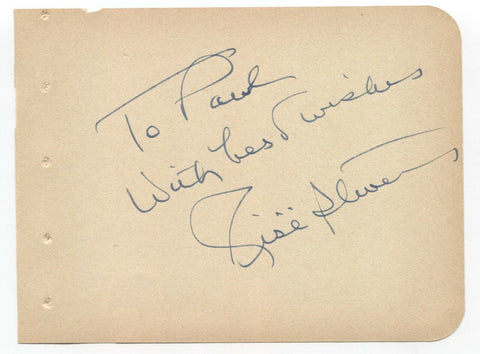 To Paul
With best wishes
Risë Stevens